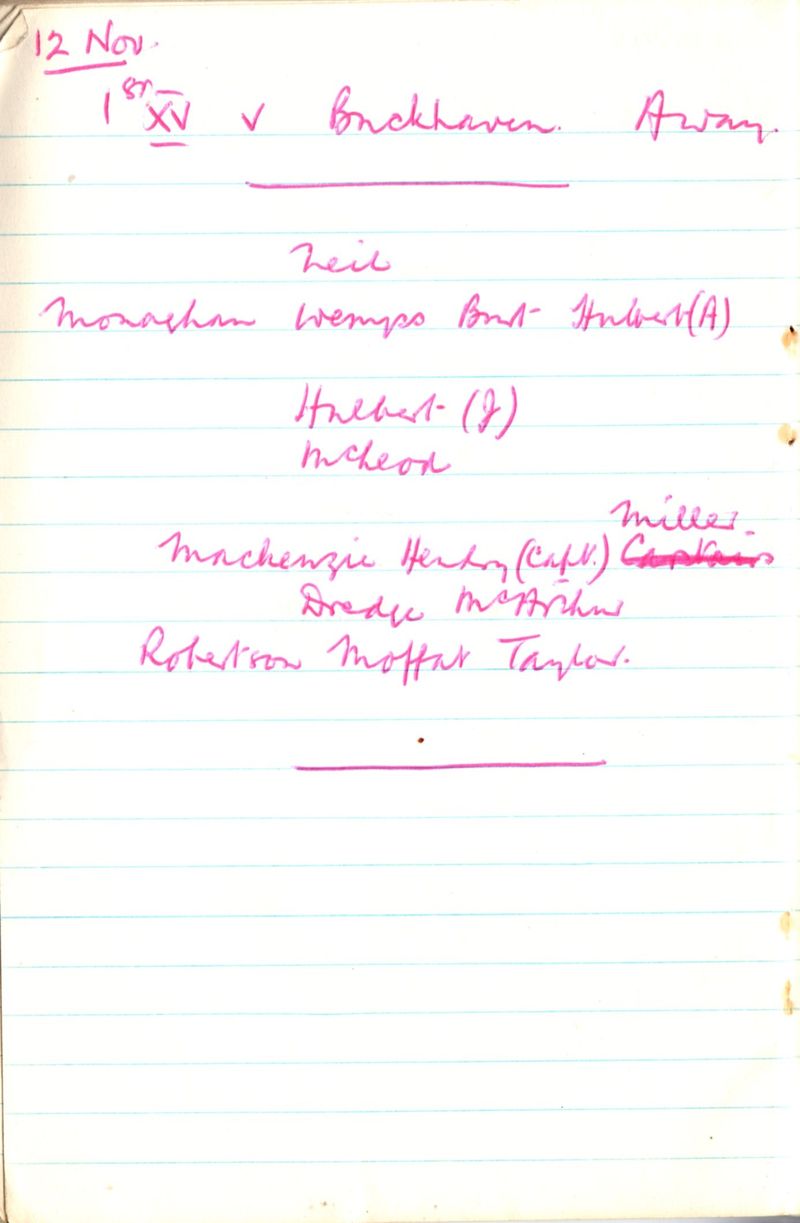 12 Nov.
1st XV v Buckhaven. Away.
Neil
Monaghan Wemyss Hulbert (A)
Hulbert (J)
McLeod
Miller
Mackenzie Hendry (Capt.) Captain
Dredge McArthur
Robertson Moffat Taylor.